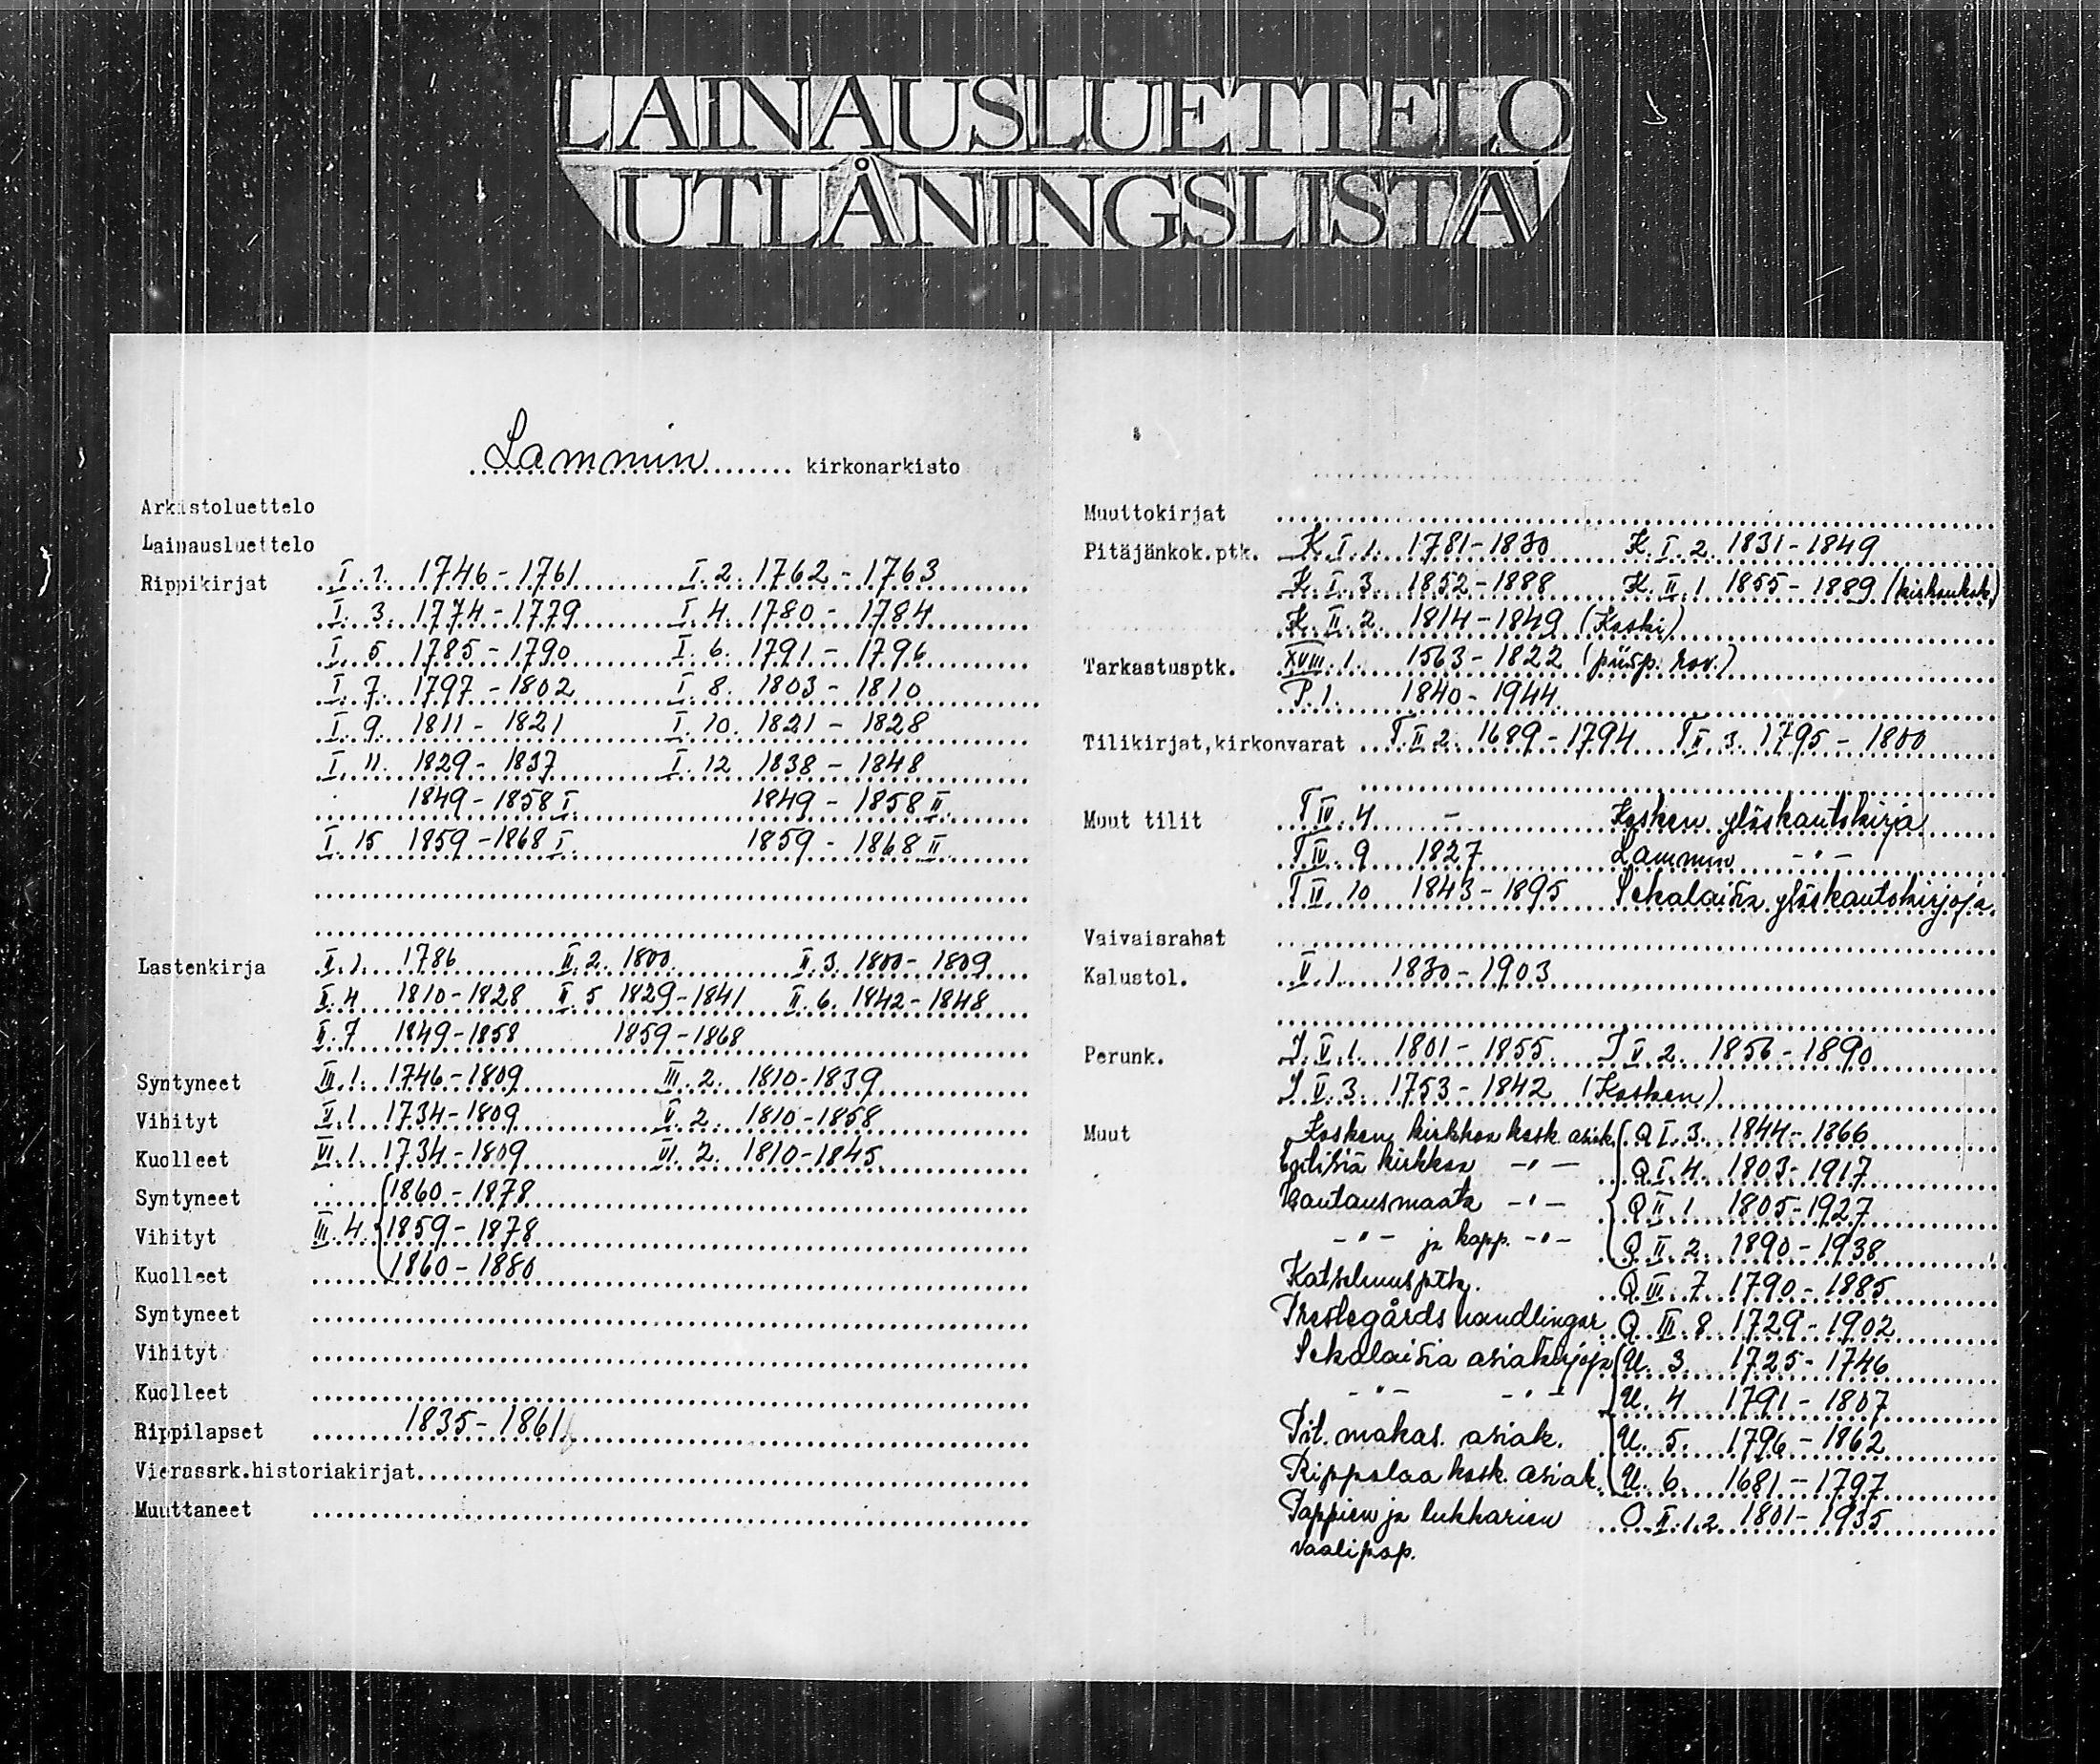 LAINAUSLUETTELO
UTLÅNINGSLISTA
Lammin kirkonarkisto
Arkistoluettelo
Lainausluettelo
Rippikirjat I. 1. 1746-1761 I. 2. 1762-1763
I. 3. 1774-1779 I. 4. 1780-1784
I. 5 1785-1790 I. 6. 1791-1796
I. 7. 1797-1802 I. 8. 1803-1810
I. 9. 1811-1821 I. 10. 1821-1828
I. 11. 1829-1837 I. 12 1838-1848
1849-1858 I 1849-1858 II
I. 15 1859-1868 I. 1859-1868 II
Lastenkirja II. 1. 1786 II. 2. 1800 II. 3. 1800-1809
II. 4 1810-1828 II. 5 1829-1841 II. 6. 1842-1848
II. 7 1849-1858 1859-1868
Syntyneet III. 1. 1746-1809 III. 2. 1810-1839
Vihityt V. 1 1734-1809 V. 2. 1810-1858
Kuolleet VI. 1. 1734-1809 VI. 2. 1810-1845
Syntyneet 1860-1878
Vihityt III. 4 1859-1878
Kuolleet 1860-1880
Syntyneet
Vihityt
Kuolleet
Rippilapset 1835-1861
Vierassrk.historiakirjat
Muuttaneet
Muuttokirjat
Pitäjänkok.ptk. K. I. 1. 1781-1830 K. I. 2. 1831-1849
K. I. 3. 1852-1888 K. II. 1 1855-1889 (kirkonkok.)
K. II. 2. 1814-1849 (Koski)
Tarkastusptk. XVIII. 1. 1563-1822 (piisp. rov.)
P. 1. 1840-1944
Tilikirjat,kirkonvarat T. II. 2. 1689-1794 T II. 3. 1795-1800
Muut tilit T IV. 4 - Kosken ylöskantokirja
T IV. 9 1827 Lammin -"-
T II. 10 1843-1895 Sekalaisia ylöskantokirjoja
Vaivaisrahat
Kalustol. V. 1. 1830-1903
Perunk. I. V. 1. 1801-1855 I V. 2. 1856-1890
I V. 3. 1753-1842 (Kosken)
Muut Kosken kirkkoa kosk. asiak. Q I. 3. 1844-1866
kirkkoa -"- Q I. 4. 1803-1917
hautausmaata -"- Q II. 1 1805-1927
-"- ja kapp. -"- Q II. 2. 1890-1938
Katselmusptk. Q III. 7 1790-1885
Prestegårds handlingar Q III. 8 1729-1902
Sekalaisia asiakirjoja U. 3. 1725-1746
-"- -"- U. 4 1791-1807
Pit. makas. asiak. U. 5. 1796-1862
kosk. asiak. U. 6. 1681-1797
Pappien ja lukkarien O. II. 1.2 1801-1935
vaalipap.